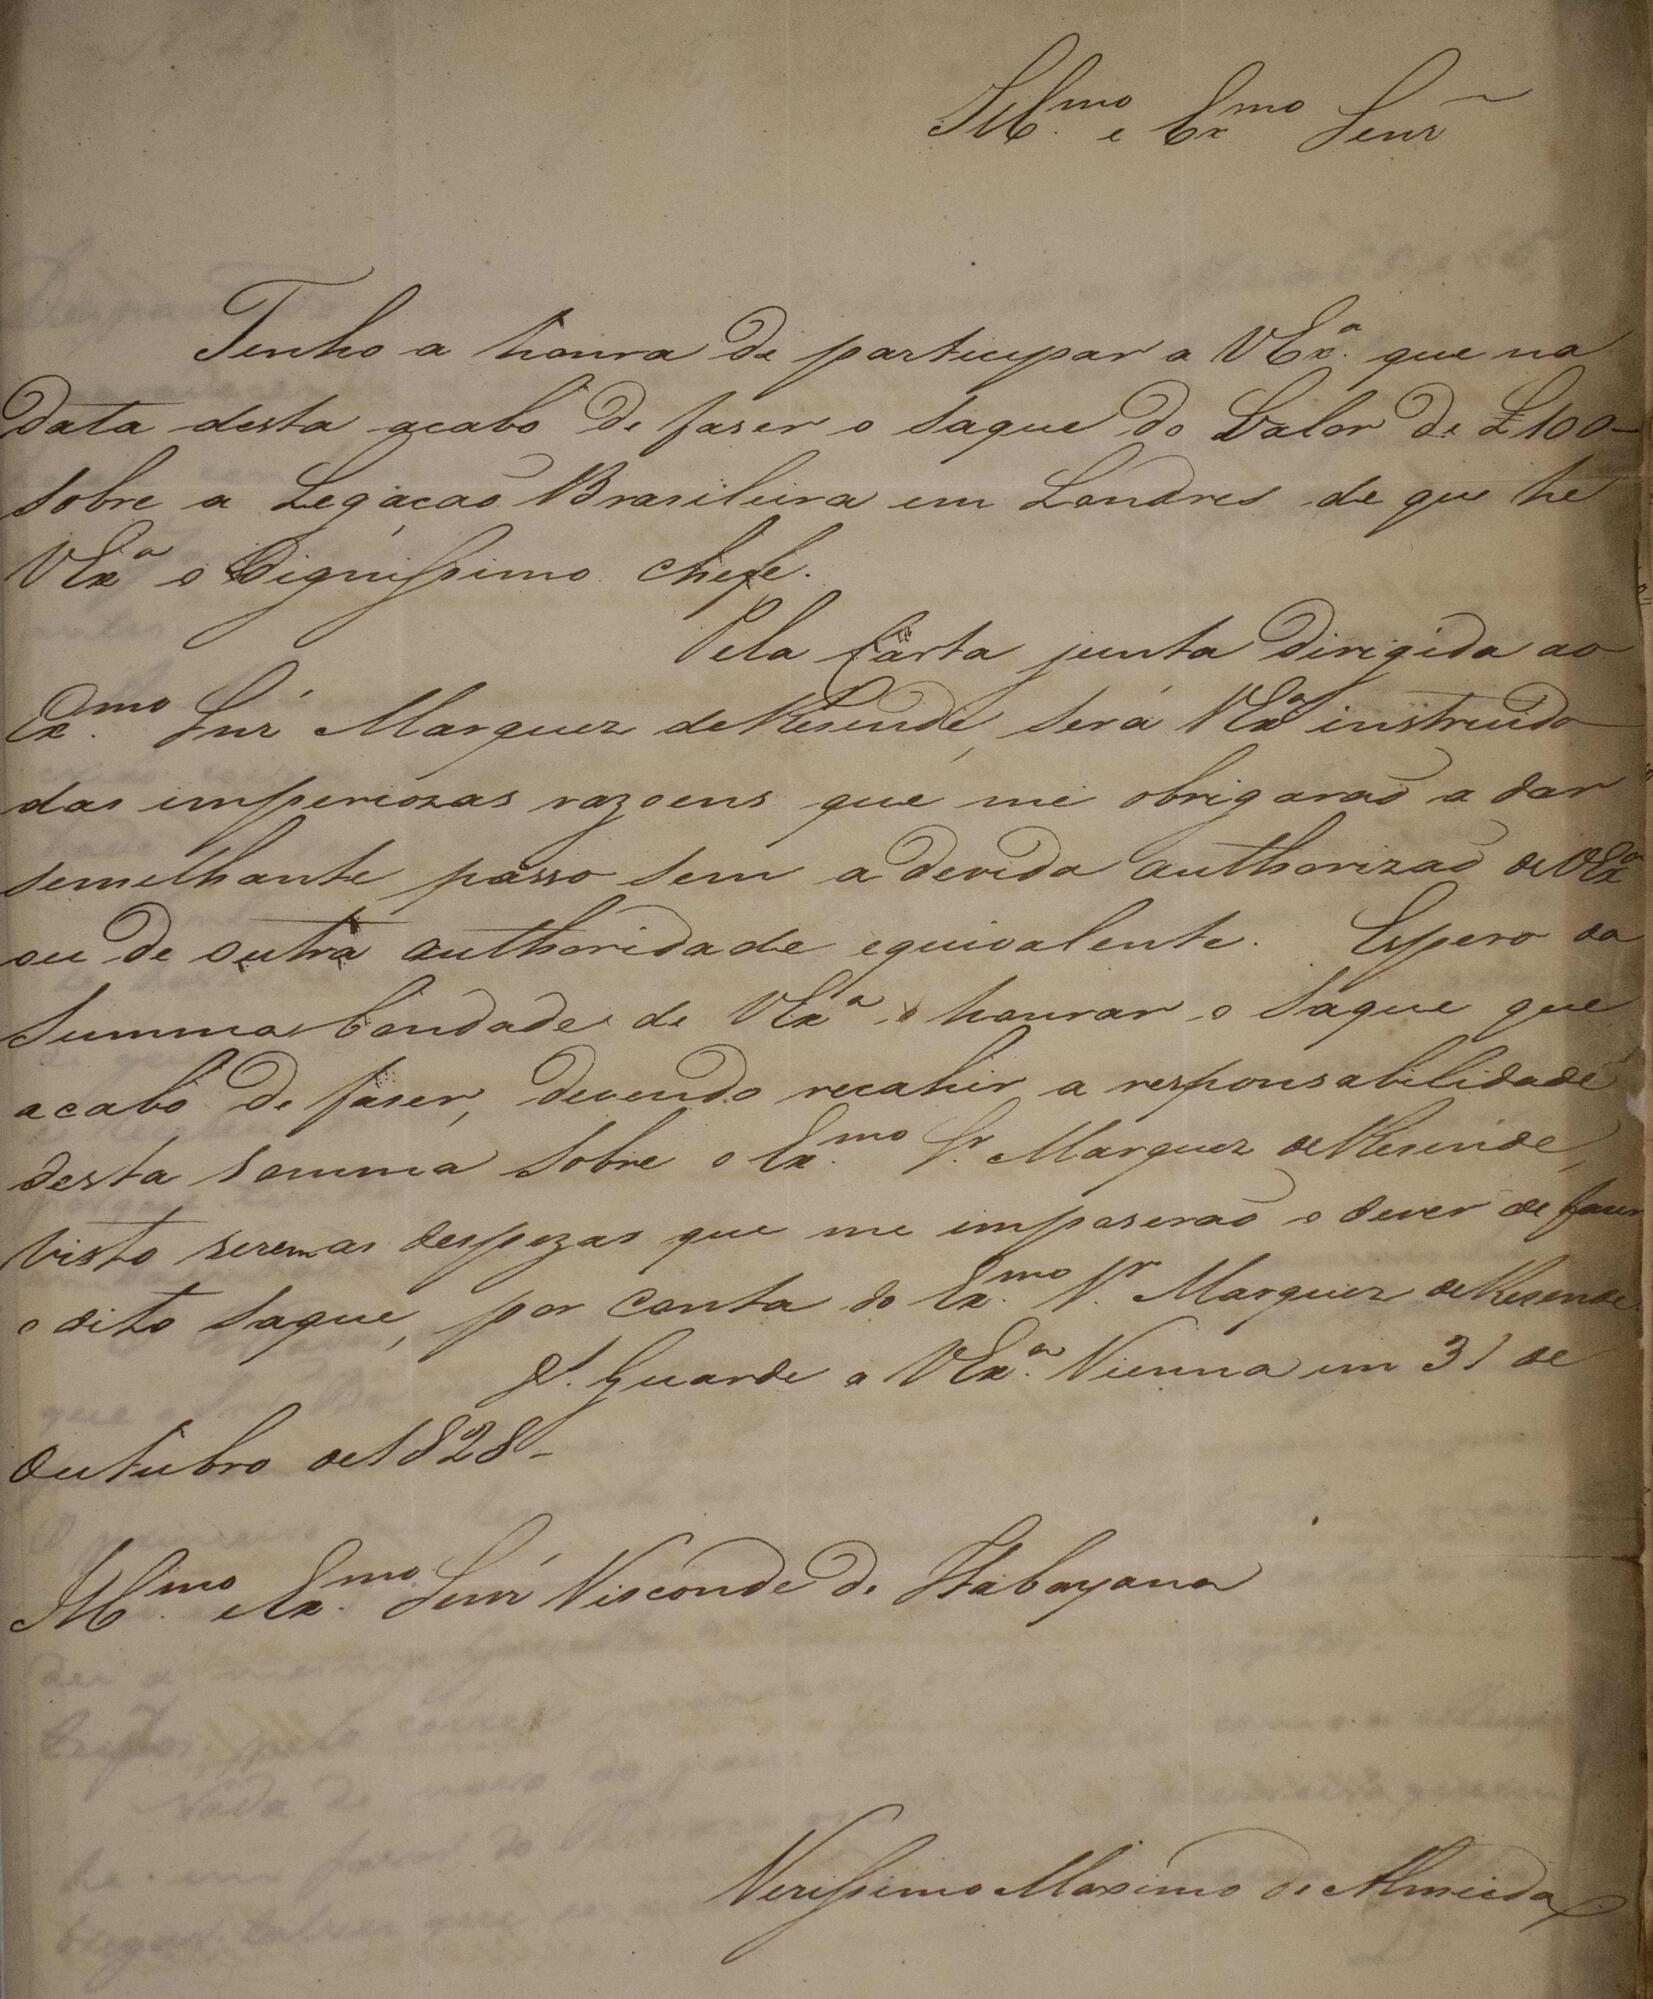 Ill.mo e Ex.mo Senr
Tenho a honra de participar a VEx.a que na
data desta acabo de faser o saque do Valor de £100-
sobre a Legação Brasileira em Londres de que he
VEx.a o Dignissimo Chefe.
Pela Carta junta dirigida ao
Ex.mo Snr Marquez de Resende, será VEx.a instruido
das imperiozas razoens que me obrigarão a dar
semelhante passo sem a devida authorizaõ de VEx.a
ou de outra authoridade equivalente. Espero da
Summa bondade de VEx.a o honrar o Saque que
acabo de faser, devendo recahir a responsabilidade
desta somma sobre o Ex.mo S.r Marquez de Resende,
visto serem as despezas que me imposerão o dever de faser
o dito saque, por conta do Ex.mo S.r Marquez de Resende.
D.s Guarde a VEx.a Vienna em 31 de
Outubro de 1828-
Ill.mo e Ex.mo Senr Visconde de Itabayana
Verissimo Maximo de Almeida